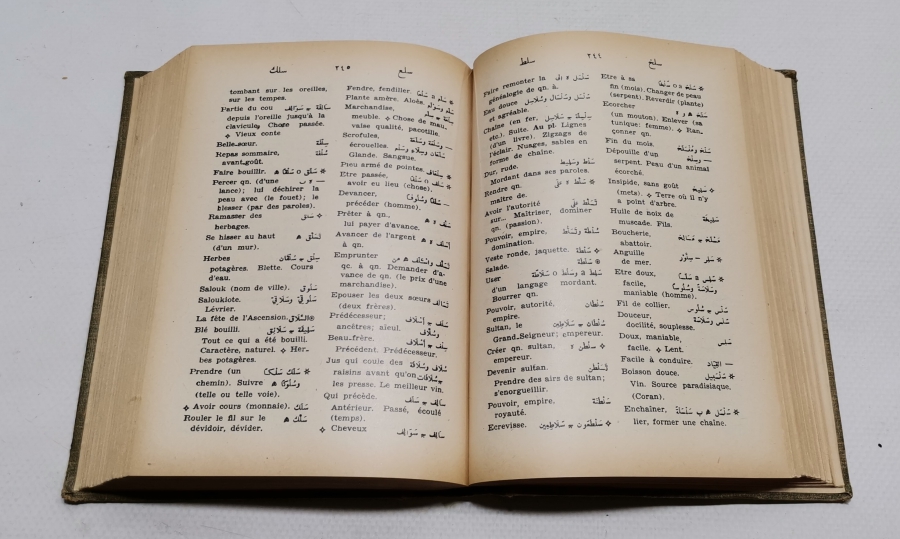 سلخ
٢٤٤
سلط
Etre à sa
fin (mois). Changer de peau
(serpent). Reverdir (plante)
Ecorcher
(un mouton). Enlever (sa
tunique: femme). ❖ Ran-
çonner qn.
Fin du mois.
Dépouille d'un
serpent. Peau d'un animal
écorché.
Insipide, sans goût
(mets). ❖ Terre où il n'y
a point d'arbre.
Huile de noix de
muscade. Fils.
Boucherie, مَسْلَخ ج مَسَالِخ
abattoir.
Anguille
de mer.
Etre doux,
facile,
maniable (homme).
Fil de collier.
Douceur,
docilité, souplesse.
Doux, maniable, سَلِس
facile. ❖ Lent.
Facile à conduire. — القِيَاد
Boisson douce. سَلْسَبِيل ✻
Vin. Source paradisiaque,
(Coran).
Enchaîner,
lier, former une chaîne.
Faire remonter la
généalogie de qn. à.
Eau douce
et agréable.
Chaîne (en fer,
etc.). Suite. Au pl. Lignes
(d'un livre). Zigzags de
l'éclair. Nuages, sables en
forme de chaîne.
Dur, rude.
Mordant dans ses paroles.
Rendre qn.
maître de.
Avoir l'autorité تَسَلَّط على
sur... Maîtriser, dominer
qn. (passion).
Pouvoir, empire,
domination.
Veste ronde, jaquette. سَلْطَة ❖
Salade. سَلَطَة
User
d'un langage mordant.
Bourrer qn.
Pouvoir, autorité, سُلْطَان
empire.
Sultan, le سُلْطَان ج سَلَاطِين
Grand-Seigneur; empereur.
Créer qn. sultan, سَلْطَن ه ❖
empereur.
Devenir sultan. تَسَلْطَن
Prendre des airs de sultan;
s'enorgueillir.
Pouvoir, empire, سَلْطَنَة
royauté.
Ecrevisse. سَلْطَعُون ج سَلَاطِعِين ❖
سلع
٢٤٥
سلك
Fendre, fendiller.
Plante amère. Aloès.
Marchandise,
meuble. ❖ Chose de mau-
vaise qualité, pacotille.
Scrofules,
écrouelles.
Glande. Sangsue.
Pieu armé de pointes.
Etre passée,
avoir eu lieu (chose).
Devancer,
précéder (homme).
Prêter à qn.,
lui payer d'avance.
Avancer de l'argent
à qn.
Emprunter
qc. à qn. Demander d'a-
vance de qn. (le prix d'une
marchandise).
Epouser les deux sœurs تَسَالَف
(deux frères).
Prédécesseur; سَلَف ج أَسْلَاف
ancêtres; aïeul.
Beau-frère.
Précédent. Prédécesseur.
Jus qui coule des
raisins avant qu'on
les presse. Le meilleur vin.
Qui précède. سَالِف ج سَلَف
Antérieur. Passé, écoulé
(temps).
❖ Cheveux سَالِف ج سَوَالِف
tombant sur les oreilles,
sur les tempes.
Partie du cou سَالِفَة ج سَوَالِف
depuis l'oreille jusqu'à la
clavicule. Chose passée.
❖ Vieux conte
Belle-sœur. سِلْفَة
Repas sommaire, سُلْفَة
avant-goût.
Faire bouillir.
Percer qn. (d'une
lance); lui déchirer la
peau avec (le fouet); le
blesser (par des paroles).
Ramasser des سَلَّق ❖
herbages.
Se hisser au haut تَسَلَّق ه
(d'un mur).
Herbes سِلْق ج سُلْقَان
potagères. Blette. Cours
d'eau.
Salouk (nom de ville). سَلُوق
Saloukiote. سَلُوقِيّ وسَلَاقِيّ
Lévrier.
La fête de l'Ascension. السُّلَّاق
Blé bouilli. سَلِيقَة ج سَلَائِق
Tout ce qui a été bouilli.
Caractère, naturel. ❖ Her-
bes potagères.
Prendre (un
chemin). Suivre
(telle ou telle voie).
❖ Avoir cours (monnaie). سَلَك
Rouler le fil sur le
dévidoir, dévider.